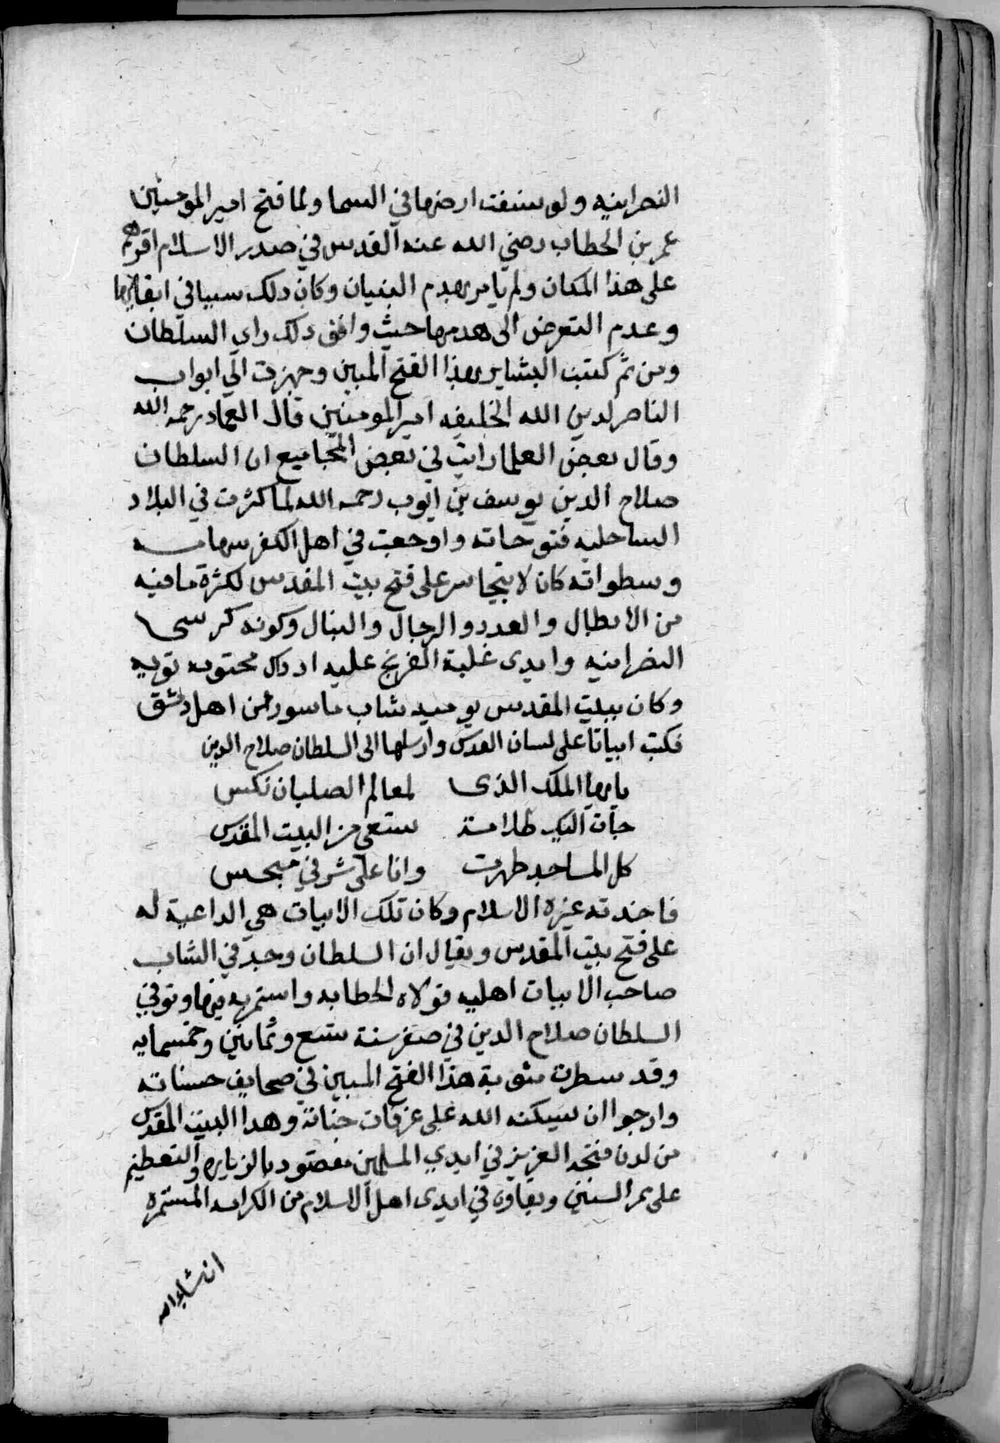 النصرانيه ولو نسفت ارضها في السما ولما فتح امير المومنين
عمر بن الخطاب رضي الله عنه القدس في صدر الاسلام اقرهم
على هذا المكان ولم يامر بهدم البنيان وكان دلك سببا في ابقايها
وعدم التعرض الى هدمها حيث وافق دلك راي السلطان
ومن ثم كتبت البشاير بهذا الفتح المبين وجهزت الي ابواب
الناصر لدين الله الخليفه امير المومنين قال العماد رحمه الله
وقال بعض العلما رايت في بعض المجاميع ان السلطان
صلاح الدين يوسف بن ايوب رحمه الله لما كثرت في البلاد
الساحليه فتوحاته واوجعت في اهل الكفر سهامه
وسطواته كان لا يتجاسر على فتح بيت المقدس لكثرة ما فيه
من الابطال والعدد والرجال والنبال وكونه كرسى
النصرانيه وايدى غلبة الفرنج عليه اد داك محتويه قويه
وكان ببيت المقدس يوميد شاب ماسور من اهل دمشق
فكتب ابياتا على لسان القدس وارسلها الى السلطان صلاح الدين
يا يها الملك الذى لمعالم الصلبان نكس
جأت اليك ظلامة ستعى من البيت المقدس
كل المساجد طهرت وانا على شرفي منجس
فاخدته غيرة الاسلام وكان تلك الابيات هي الداعية له
على فتح بيت المقدس ويقال ان السلطان وجد في الشاب
صاحب الابيات اهليه فولاه الخطابه واستمر به فيها وتوفي
السلطان صلاح الدين في صفر سنة تسع وثمانين وخمسمايه
وقد سطرت مثوبة هذا الفتح المبين في صحايف حسناته
وارجوا ان يسكنه الله على غرفات جناته وهدا البيت المقدس
من لدن فتحه العزيز في ايدي المسلمين مقصود بالزياره والتعظيم
على مر السنين وبقاوه في ايدى اهل الاسلام من الكرامه المستمرة
ان شاء الله